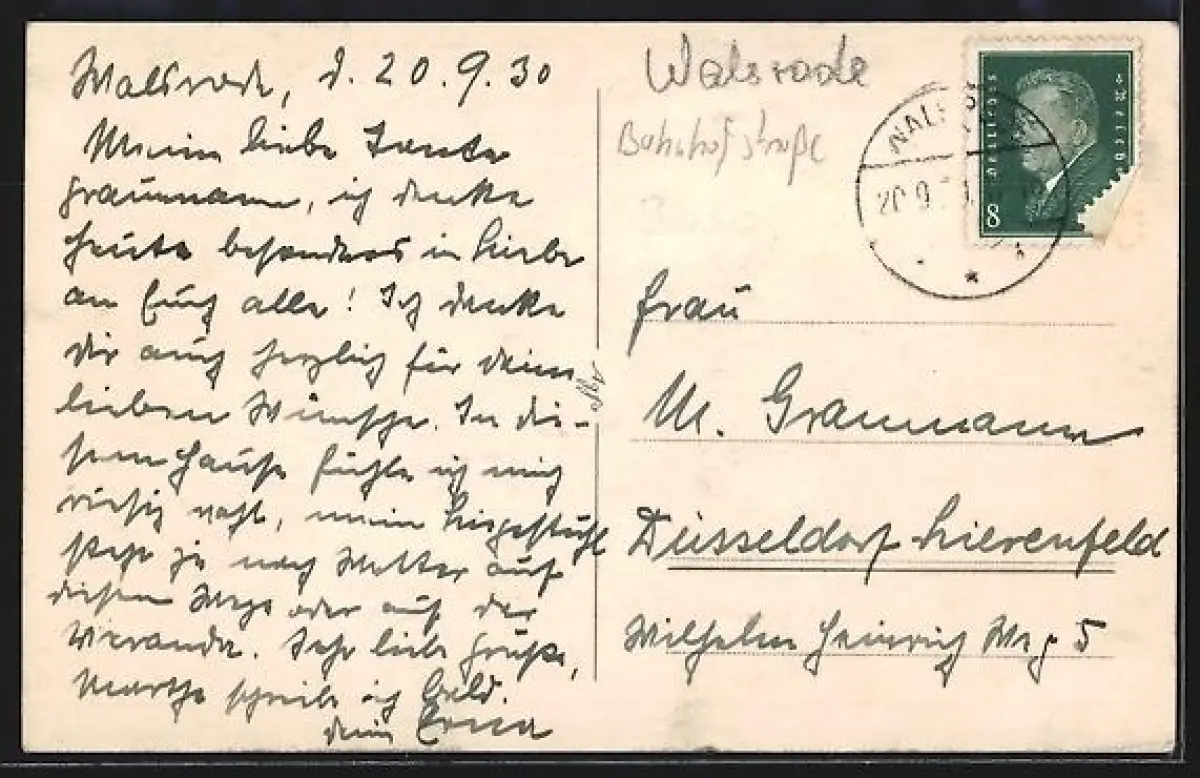 Walsrode, d. 20.9.30
Meine liebe Tante
Graumann, ich denke
heute besonders in Liebe
an Euch alle! Ich danke
Dir auch herzlich für Deine
lieben Wünsche. In die-
sem Hause fühle ich mich
richtig wohl, mein Liegestuhl
steht je nach Wetter auf
diesem Wege oder auf der
Veranda. Sehr liebe Grüße,
Marthe schreibe ich bald.
Deine Erica
Walsrode
Bahnhofstraße
WALSRODE
20.9.
Deutsches Reich
8
Frau
M. Graumann
Düsseldorf Lierenfeld
Wilhelm Heinrich Weg 5